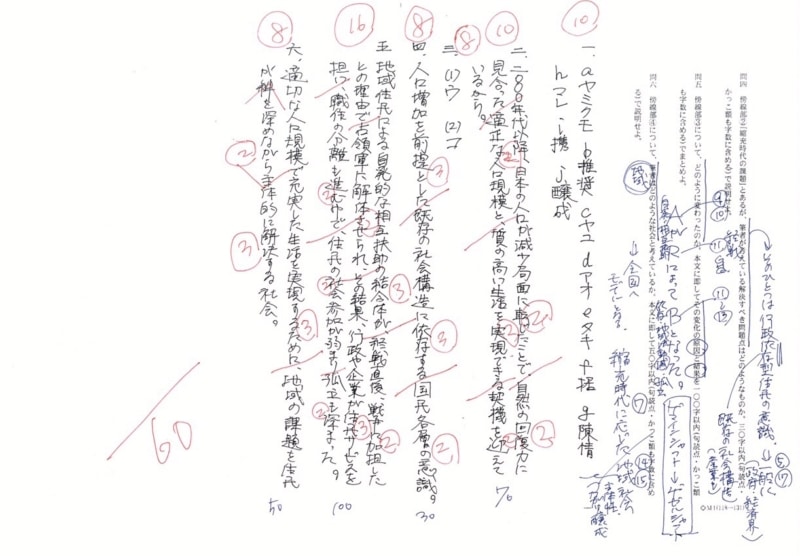 問四 傍線部②「縮充時代の課題」とあるが、筆者が考えている解決すべき問題点はどのようなものか。三〇字以内（句読点・
かっこ類も字数に含める）で説明せよ。
問五 傍線部③について、どのように変わったのか、本文に即してその変化の原因と結果を一〇〇字以内（句読点・かっこ類
も字数に含める）でまとめよ。
問六 傍線部④について、筆者はどのような社会と考えているか、本文に即して五〇字以内（句読点・かっこ類も字数に含め
る）で説明せよ。
そのひとつは行政依存型住民の意識。
⑤
⑰
既存の社会構造
④
⑩
⑪
⑬
AがRによってBとなった。
ゲマインシャフト→ゲゼルシャフト
地域
→全国へ
縮充時代に応じた地域社会
⑦
⑭
⑮
主体性
醸成
⑩
一、aヤミクモ b推奨 cヤユ dアオ eタキ f括 g陳情
hマレ i携 j醸成
⑩
二、二〇〇八年代以降、日本の人口が減少局面に転じたことで、自然の回復力に
見合った適正な人口規模と、質の高い生活を実現できる契機を迎えて
いるから。 70
⑧
三、(1)ウ (2)エ
⑧
四、人口増加を前提とした既存の社会構造に依存する国民各層の意識。 30
⑯
五、地域住民による自発的な相互扶助の結合体が、終戦直後、戦争に加担した
との理由で占領軍に解体させられ、その結果、行政や企業が住民サービスを
担い、職住の分離も進む中で、住民の社会参加が弱まり孤立も深まった。 100
⑧
六、適切な人口規模で充実した生活を実現するために、地域の課題を住民
が絆を深めながら主体的に解決する社会。 50
60